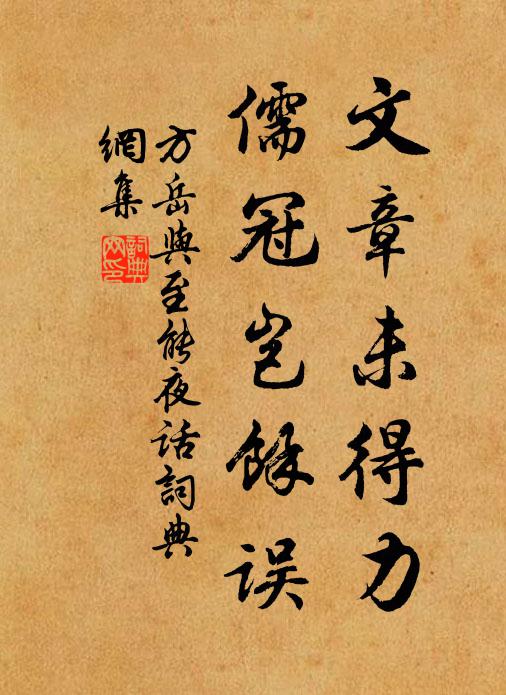 文章未得力
儒冠岂餘误
方岳與至能夜话詞典
網集
詞典
网印